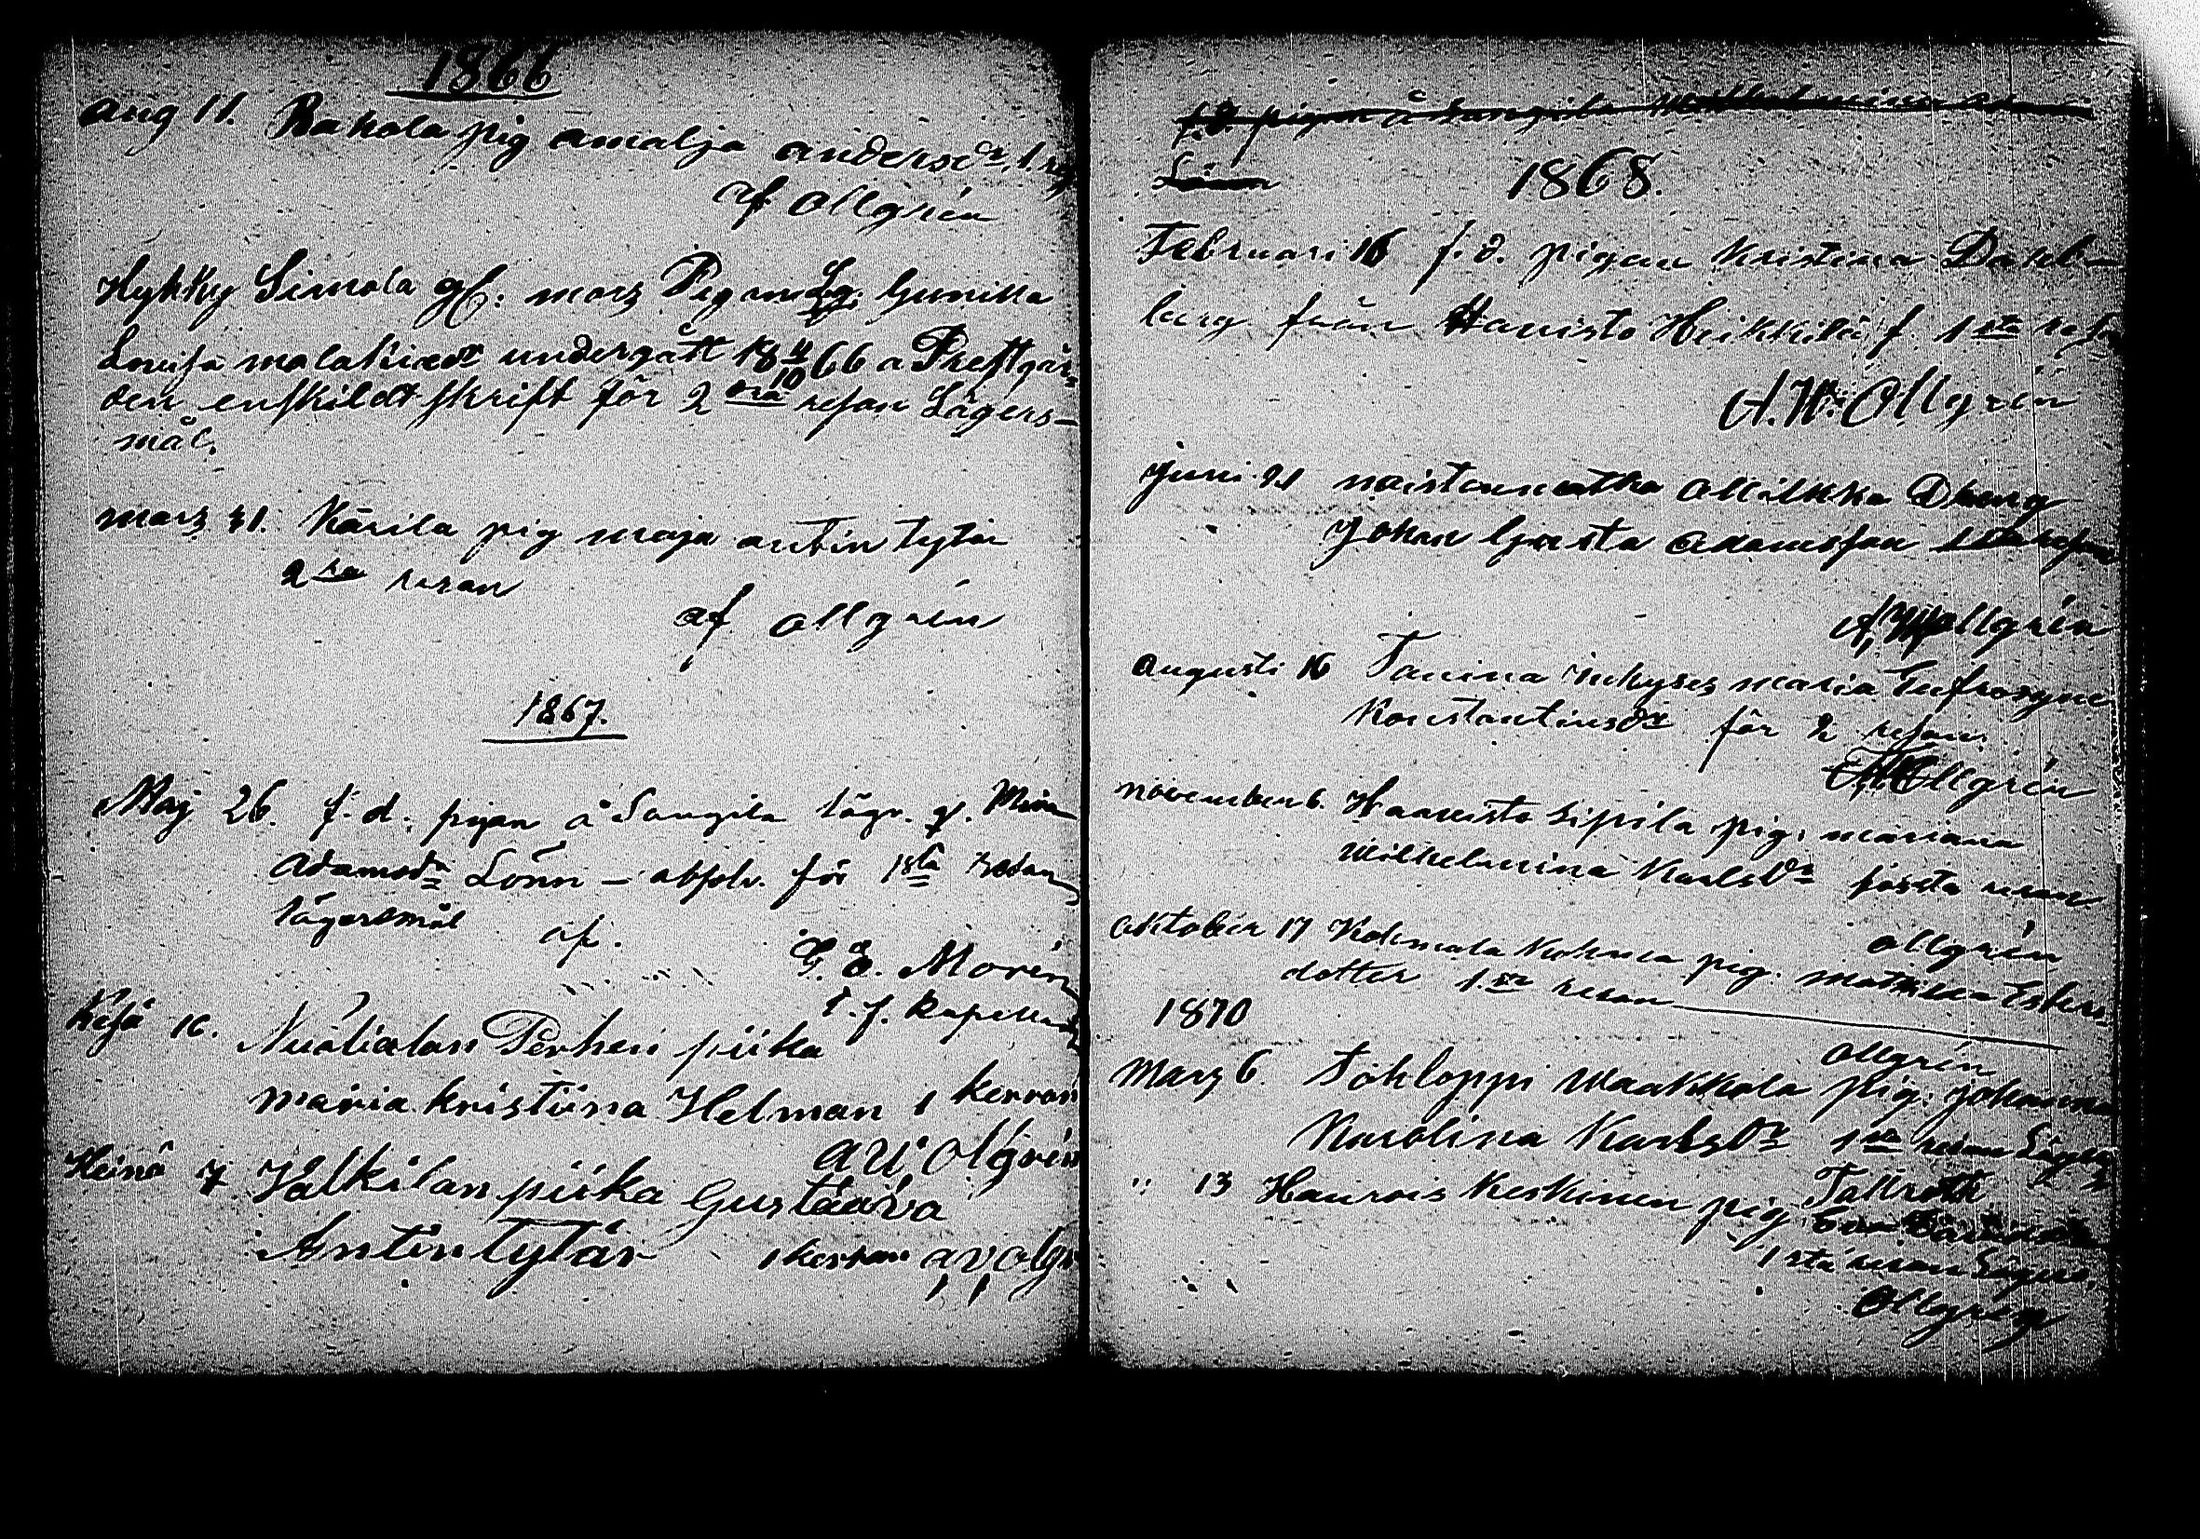 1866
Aug 11. Rakola pig Amalja Andersdr. 1.
af Ollgrén
Hykky Simola gf: mors Pigan Lg. Gunilla
Lovisa Malakiædr undergått 18 4/10 66 a Prestgår-
den enskildt skrift för 2 dra resan Lägers-
mål.
Mars 31. Kärila pig Maja Antin tytär
2 ra resan
af Ollgrén
1867.
Maj 26. f. d. pigan å Sangila lägr. qf. Mina
Adamsdr Lönn – absolv. för 1sta resan
lägersmål af.
G. E. Morén
t. f. kapellan
Kesä 16. Nuolialan Perheri piika
Maria Kristiina Helman 1 kerran
A V. Olgrén
Heinä 7 Valkilan piika Gustaava
Antintytär 1 kerran A V Olgr
f. d. pigan å Sangila Wilhelmina Adams
Lönn
1868.
Februari 16 f. d. pigan Kristina Dahl-
berg från Hauisto Heikkilä f. 1 sta resa
A. W. Ollgrén
Juni 21 noistenmatka Ollilkka Dreng
Johan Gusta Adamsson 1 sta resan
A. W. Ollgrén
Augusti 16 Tanina inhyses Maria Eufrosyne
Konstantinsdr för 2 resan.
A. W. Ollgrén
November 6. Haavisto Sipilä pig. Mariana
Wilhelmina Karlsdr första resan
Ollgrén
Oktober 17 Kokemala Kuhna pig. Mathilda Eskers-
dotter 1 sta resan
1870
Ollgrén
Mars 6. Tohloppi Waakkola pig. Johanna
Karolina Karlsdr 1 sta resan Lägers
Tallroth
" 13 Haurois Keskinen pig
1 sta resan Lägers.
Ollgrén